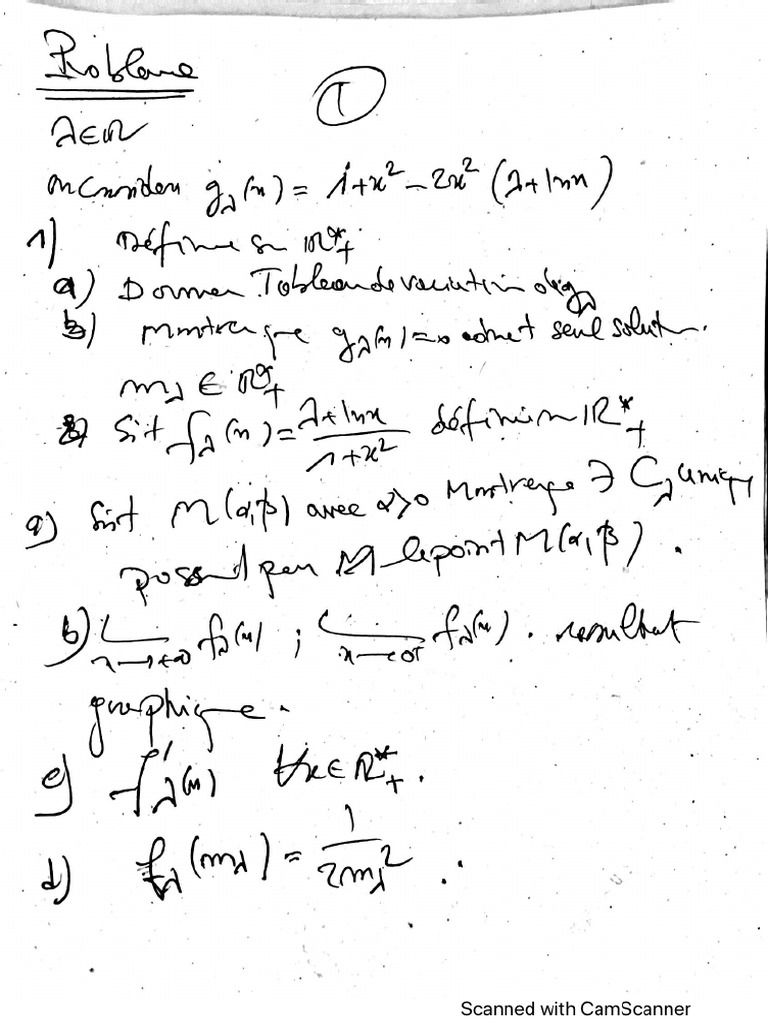 Problème
I
λ∈ℝ
on considère g_λ(x) = 1+x² - 2x² (λ+lnx)
1) Définie sur ℝ*₊
a) Donner Tableau de variation de g_λ
b) Montrer que g_λ(x)=0 admet seul solution
m_λ ∈ ℝ*₊
2) Soit f_λ(x) = (λ+lnx)/(1+x²) définie sur ℝ*₊
a) Soit M(α,β) avec α>0 Montrer que ∃ C_λ unique
passant par le point M(α,β).
b) f_λ(x) ; f_λ(x). resultat
x→+∞ x→0⁺
graphique.
c) f'_λ(x) ∀x∈ℝ*₊.
d) f_λ(m_λ) = 1/(2m_λ²)
Scanned with CamScanner